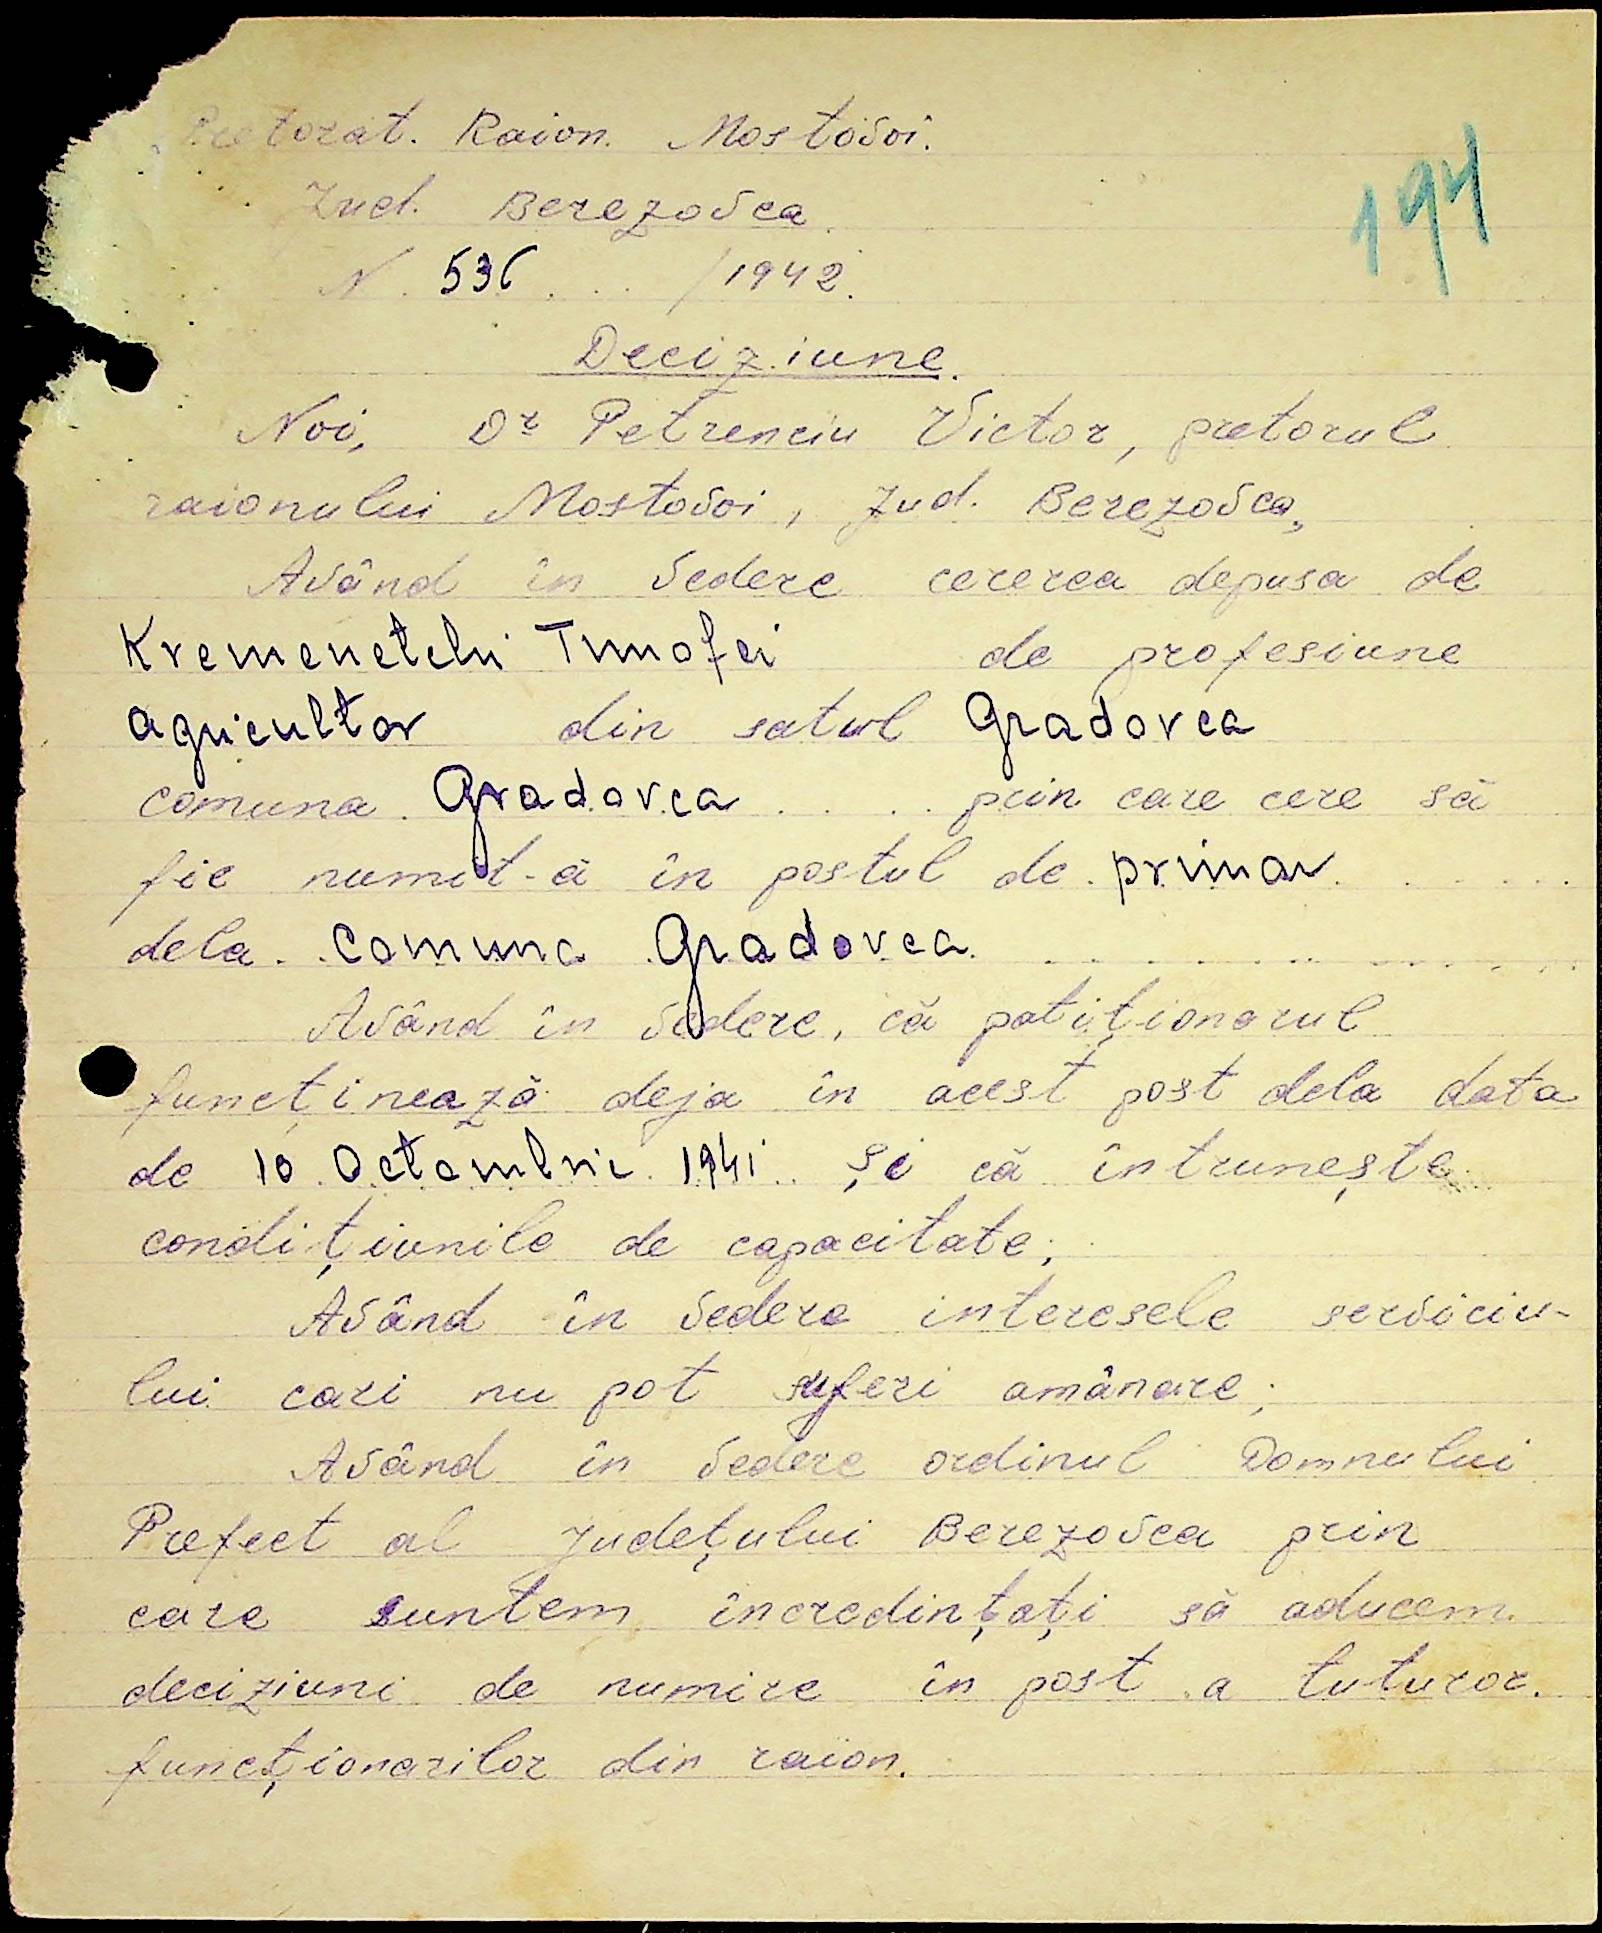 Pretorat. Raion. Mostovoi.
194
Jud. Berezovca.
N. 536 . . . /1942.
Deciziune.
Noi, Dr Petrenciu Victor, pretorul
raionului Mostovoi, Jud. Berezovca,
Având în vedere cererea depusa de
Timofei de profesiune
agricultor din satul Gradovca
comuna . Gradovca . . . . prin care cere să
fie numit-ă în postul de . primar . . . . . .
dela . . Comuna Gradovca . . . . . . . . . . .
Având în vedere, că patiționarul
funcținează deja în acest post dela data
de 10 Octombrie 1941 . . și că întrunește
condițiunile de capacitate;
Având în vedere interesele serviciu-
lui cari nu pot suferi amânare;
Având în vedere ordinul Domnului
Prefect al Județului Berezovca prin
care suntem încredințați să aducem
deciziuni de numire în post a tuturor.
funcționarilor din raion.